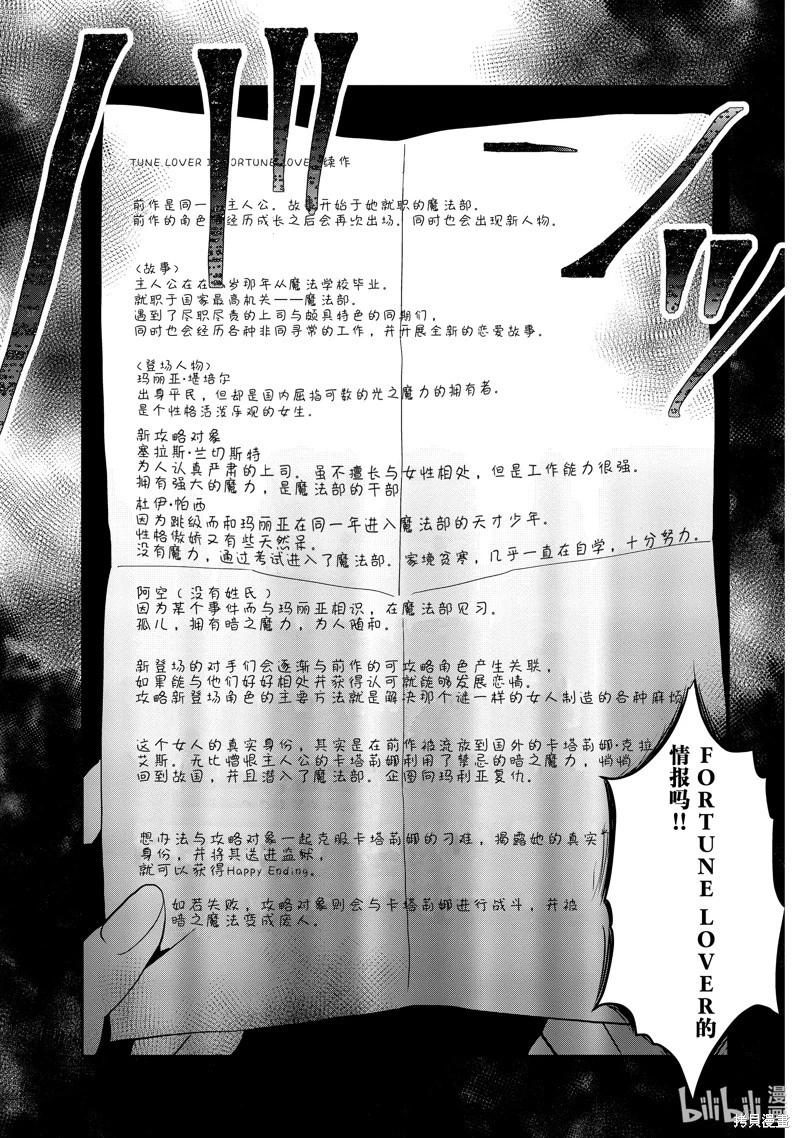 TUNE LOVER ORTUNE LOVE 续作
前作是同一 主人公。故事开始于她就职的魔法部。
前作的角色 经历成长之后会再次出场。同时也会出现新人物。
〈故事〉
主人公在在 岁那年从魔法学校毕业。
就职于国家最高机关——魔法部。
遇到了尽职尽责的上司与颇具特色的同期们，
同时也会经历各种非同寻常的工作，并开展全新的恋爱故事。
〈登场人物〉
玛丽亚·堪培尔
出身平民，但却是国内屈指可数的光之魔力的拥有者。
是个性格活泼乐观的女生。
新攻略对象
塞拉斯·兰切斯特
为人认真严肃的上司。虽不擅长与女性相处，但是工作能力很强。
拥有强大的魔力，是魔法部的干部
杜伊·帕西
因为跳级而和玛丽亚在同一年进入魔法部的天才少年。
性格傲娇又有些天然呆。
没有魔力，通过考试进入了魔法部。家境贫寒，几乎一直在自学，十分努力。
阿空（没有姓氏）
因为某个事件而与玛丽亚相识，在魔法部见习。
孤儿，拥有暗之魔力，为人随和。
新登场的对手们会逐渐与前作的可攻略角色产生关联，
如果能与他们好好相处并获得认可就能够发展恋情。
攻略新登场角色的主要方法就是解决那个谜一样的女人制造的各种麻烦
这个女人的真实身份，其实是在前作被流放到国外的卡塔莉娜·克拉
艾斯。无比憎恨主人公的卡塔莉娜利用了禁忌的暗之魔力，悄悄
回到故国，并且潜入了魔法部。企图向玛利亚复仇。
想办法与攻略对象一起克服卡塔莉娜的刁难，揭露她的真实
身份，并将其送进监狱，
就可以获得Happy Ending。
如若失败，攻略对象则会与卡塔莉娜进行战斗，并被
暗之魔法变成废人。
FORTUNE LOVER的
情报吗!!
bilibili
漫画
拷貝漫畫